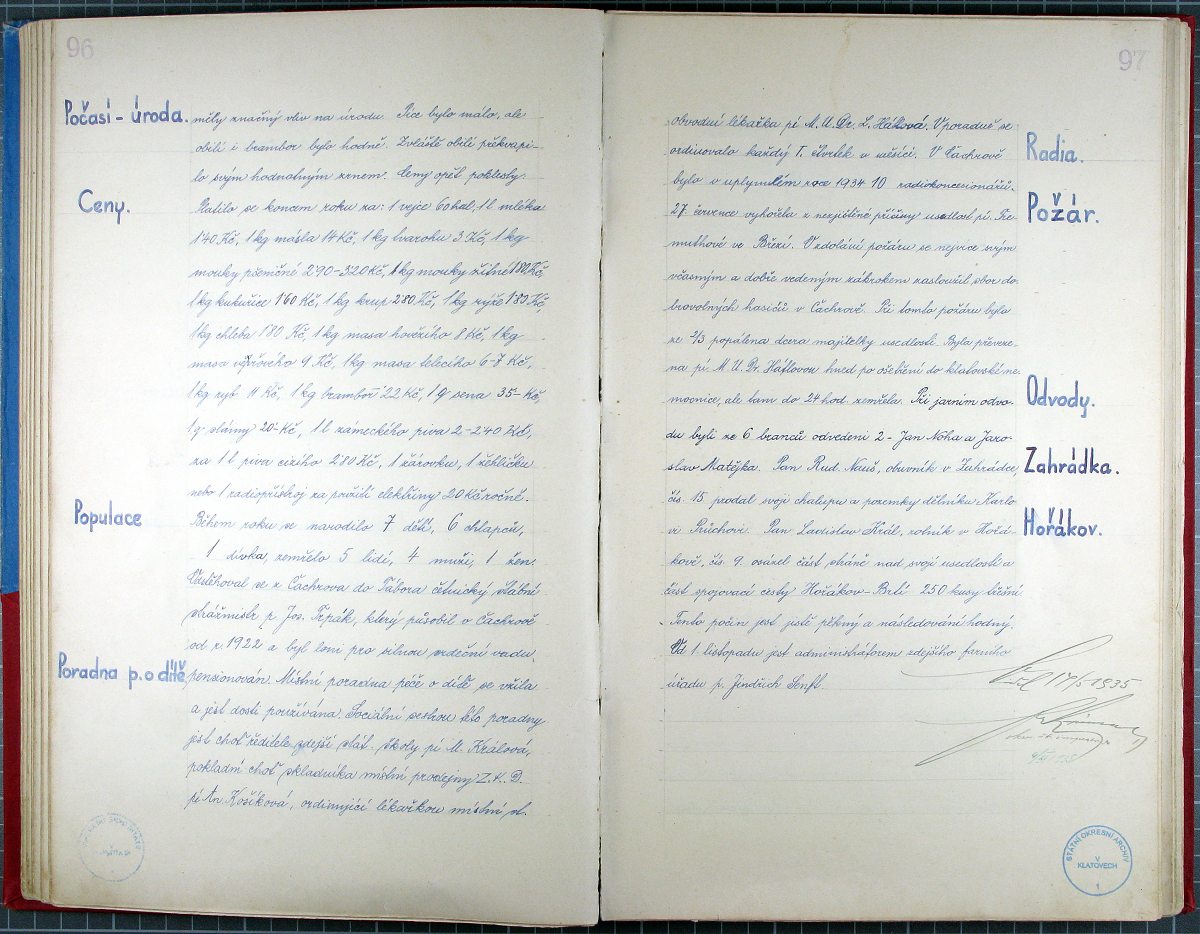 96
Počasí - úroda.
měly značný vliv na úrodu. Píce bylo málo, ale
obilí i brambor bylo hodně. Zvláště obilí překvapi-
lo svým hodnotným zrnem. Ceny opět poklesly.
Ceny.
Platilo se koncem roku za: 1 vejce 60 hal, 1 l mléka
1'40 Kč, 1 kg másla 14 Kč, 1 kg tvarohu 3 Kč, 1 kg
mouky pšeničné 2'90-3'20 Kč, 1 kg mouky žitné 1'80 Kč,
1 kg kukuřice 1'60 Kč, 1 kg krup 2'80 Kč, 1 kg rýže 1'80 Kč,
1 kg chleba 1'80 Kč, 1 kg masa hovězího 8 Kč, 1 kg
masa vepřového 9 Kč, 1 kg masa telecího 6-7 Kč,
1 kg ryb 11 Kč, 1 kg brambor 22 Kč, 1 q sena 35- Kč,
1 q slámy 20- Kč, 1 l zámeckého piva 2-2'40 Kč,
za 1 l piva cizího 2'80 Kč, 1 žárovku, 1 žehličku
nebo 1 radiopřístroj za použití elektřiny 20 Kč ročně.
Populace
Během roku se narodilo 7 dětí, 6 chlapců,
1 dívka, zemřelo 5 lidí, 4 muži, 1 žen.
Odstěhoval se z Čachrova do Tábora četnický státní
strážmistr p. Jos. Trpák, který působil v Čachrově
od r. 1922 a byl loni pro silnou srdeční vadu
Poradna p. o dítě
pensionován. Místní poradna péče o dítě se vžila
a jest dosti používána. Sociální sestrou této poradny
jest choť ředitele zdejší stát. školy pí M. Králová,
pokladní choť skladníka místní prodejny Z. K. D.
pí An. Košíková, ordinující lékařkou místní st.
97
obvodní lékařka pí M. U. Dr. L. Háflová. V poradně se
Radia.
ordinovalo každý I. čtvrtek v měsíci. V Čachrově
bylo v uplynulém roce 1934 10 radiokoncesionářů.
Požár.
27. července vyhořela z nezjištěné příčiny usedlost pí. Tre-
muthové ve Březí. O zdolání požáru se nejvíce svým
včasným a dobře vedeným zákrokem zasloužil sbor do-
brovolných hasičů v Čachrově. Při tomto požáru byla
ze 2/3 popálena dcera majitelky usedlosti. Byla převeze-
na pí. M. U. Dr. Háflovou hned po ošetření do klatovské ne-
mocnice, ale tam do 24 hod. zemřela. Při jarním odvo-
Odvody.
du byli ze 6 branců odvedeni 2 - Jan Noha a Jaro-
slav Matějka. Pan Rud. Nauš, obuvník v Zahrádce,
Zahrádka.
čís. 15 prodal svoji chalupu a pozemky dělníku Karlo-
vi Průchovi. Pan Ladislav Král, rolník v Hořá-
Hořákov.
kově, čís. 9. osázel část stráně nad svojí usedlostí a
část spojovací cesty Hořákov - Brtí 250 kusy třešní.
Tento počin jest jistě pěkný a následování hodný.
Od 1. listopadu jest administrátorem zdejšího farního
úřadu p. Jindřich Senft.
17/5 1935
STÁTNÍ OKRESNÍ ARCHIV
V
KLATOVECH
1